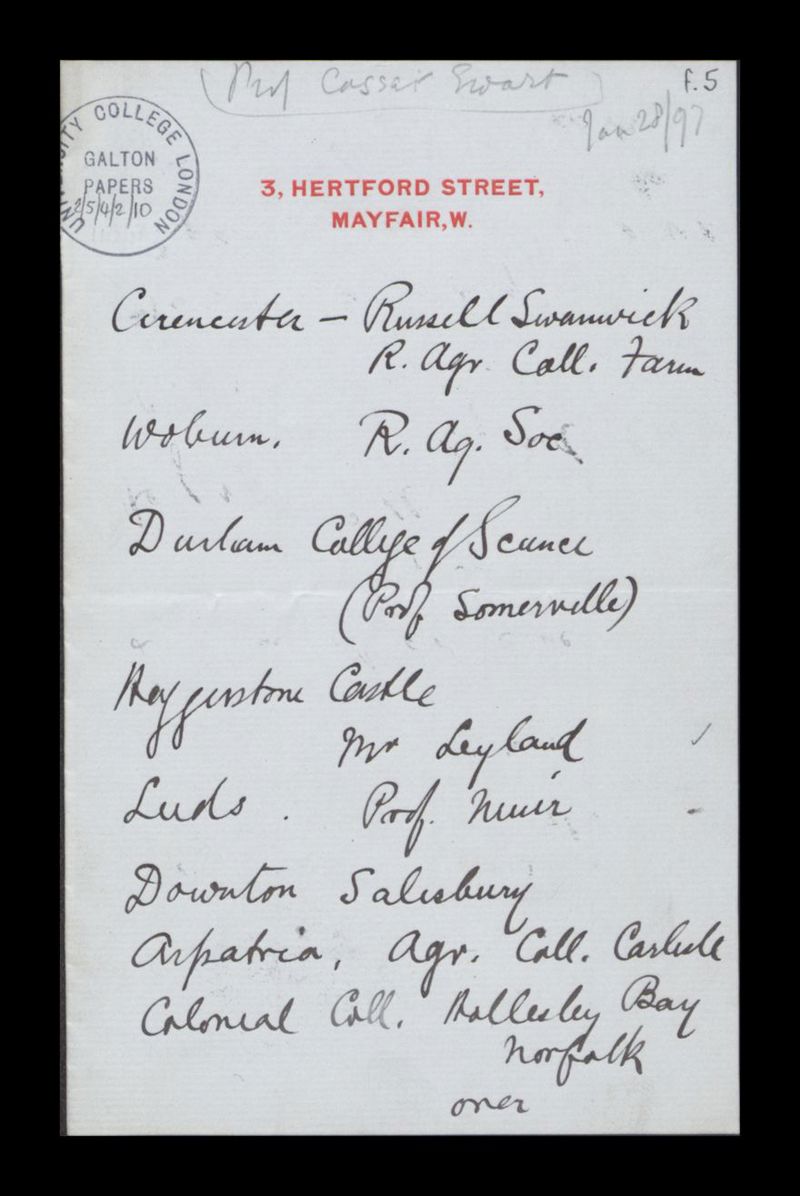 (Prof Cossar Ewart)
f.5
Jan 28/97
UNIVERSITY COLLEGE LONDON
GALTON
PAPERS
2/5/4/2/10
3, HERTFORD STREET,
MAYFAIR, W.
Cirencester – Russell Swanwick
R. Agr Coll. Farm
Woburn. R. Ag. Soc
Durham College of Science
(Prof Somerville)
Haggerstone Castle
Mr Leyland
Leeds. Prof. Muir
Downton Salisbury
Aspatria, Agr. Coll. Carlisle
Colonial Coll. Hollesley Bay
Norfolk
over